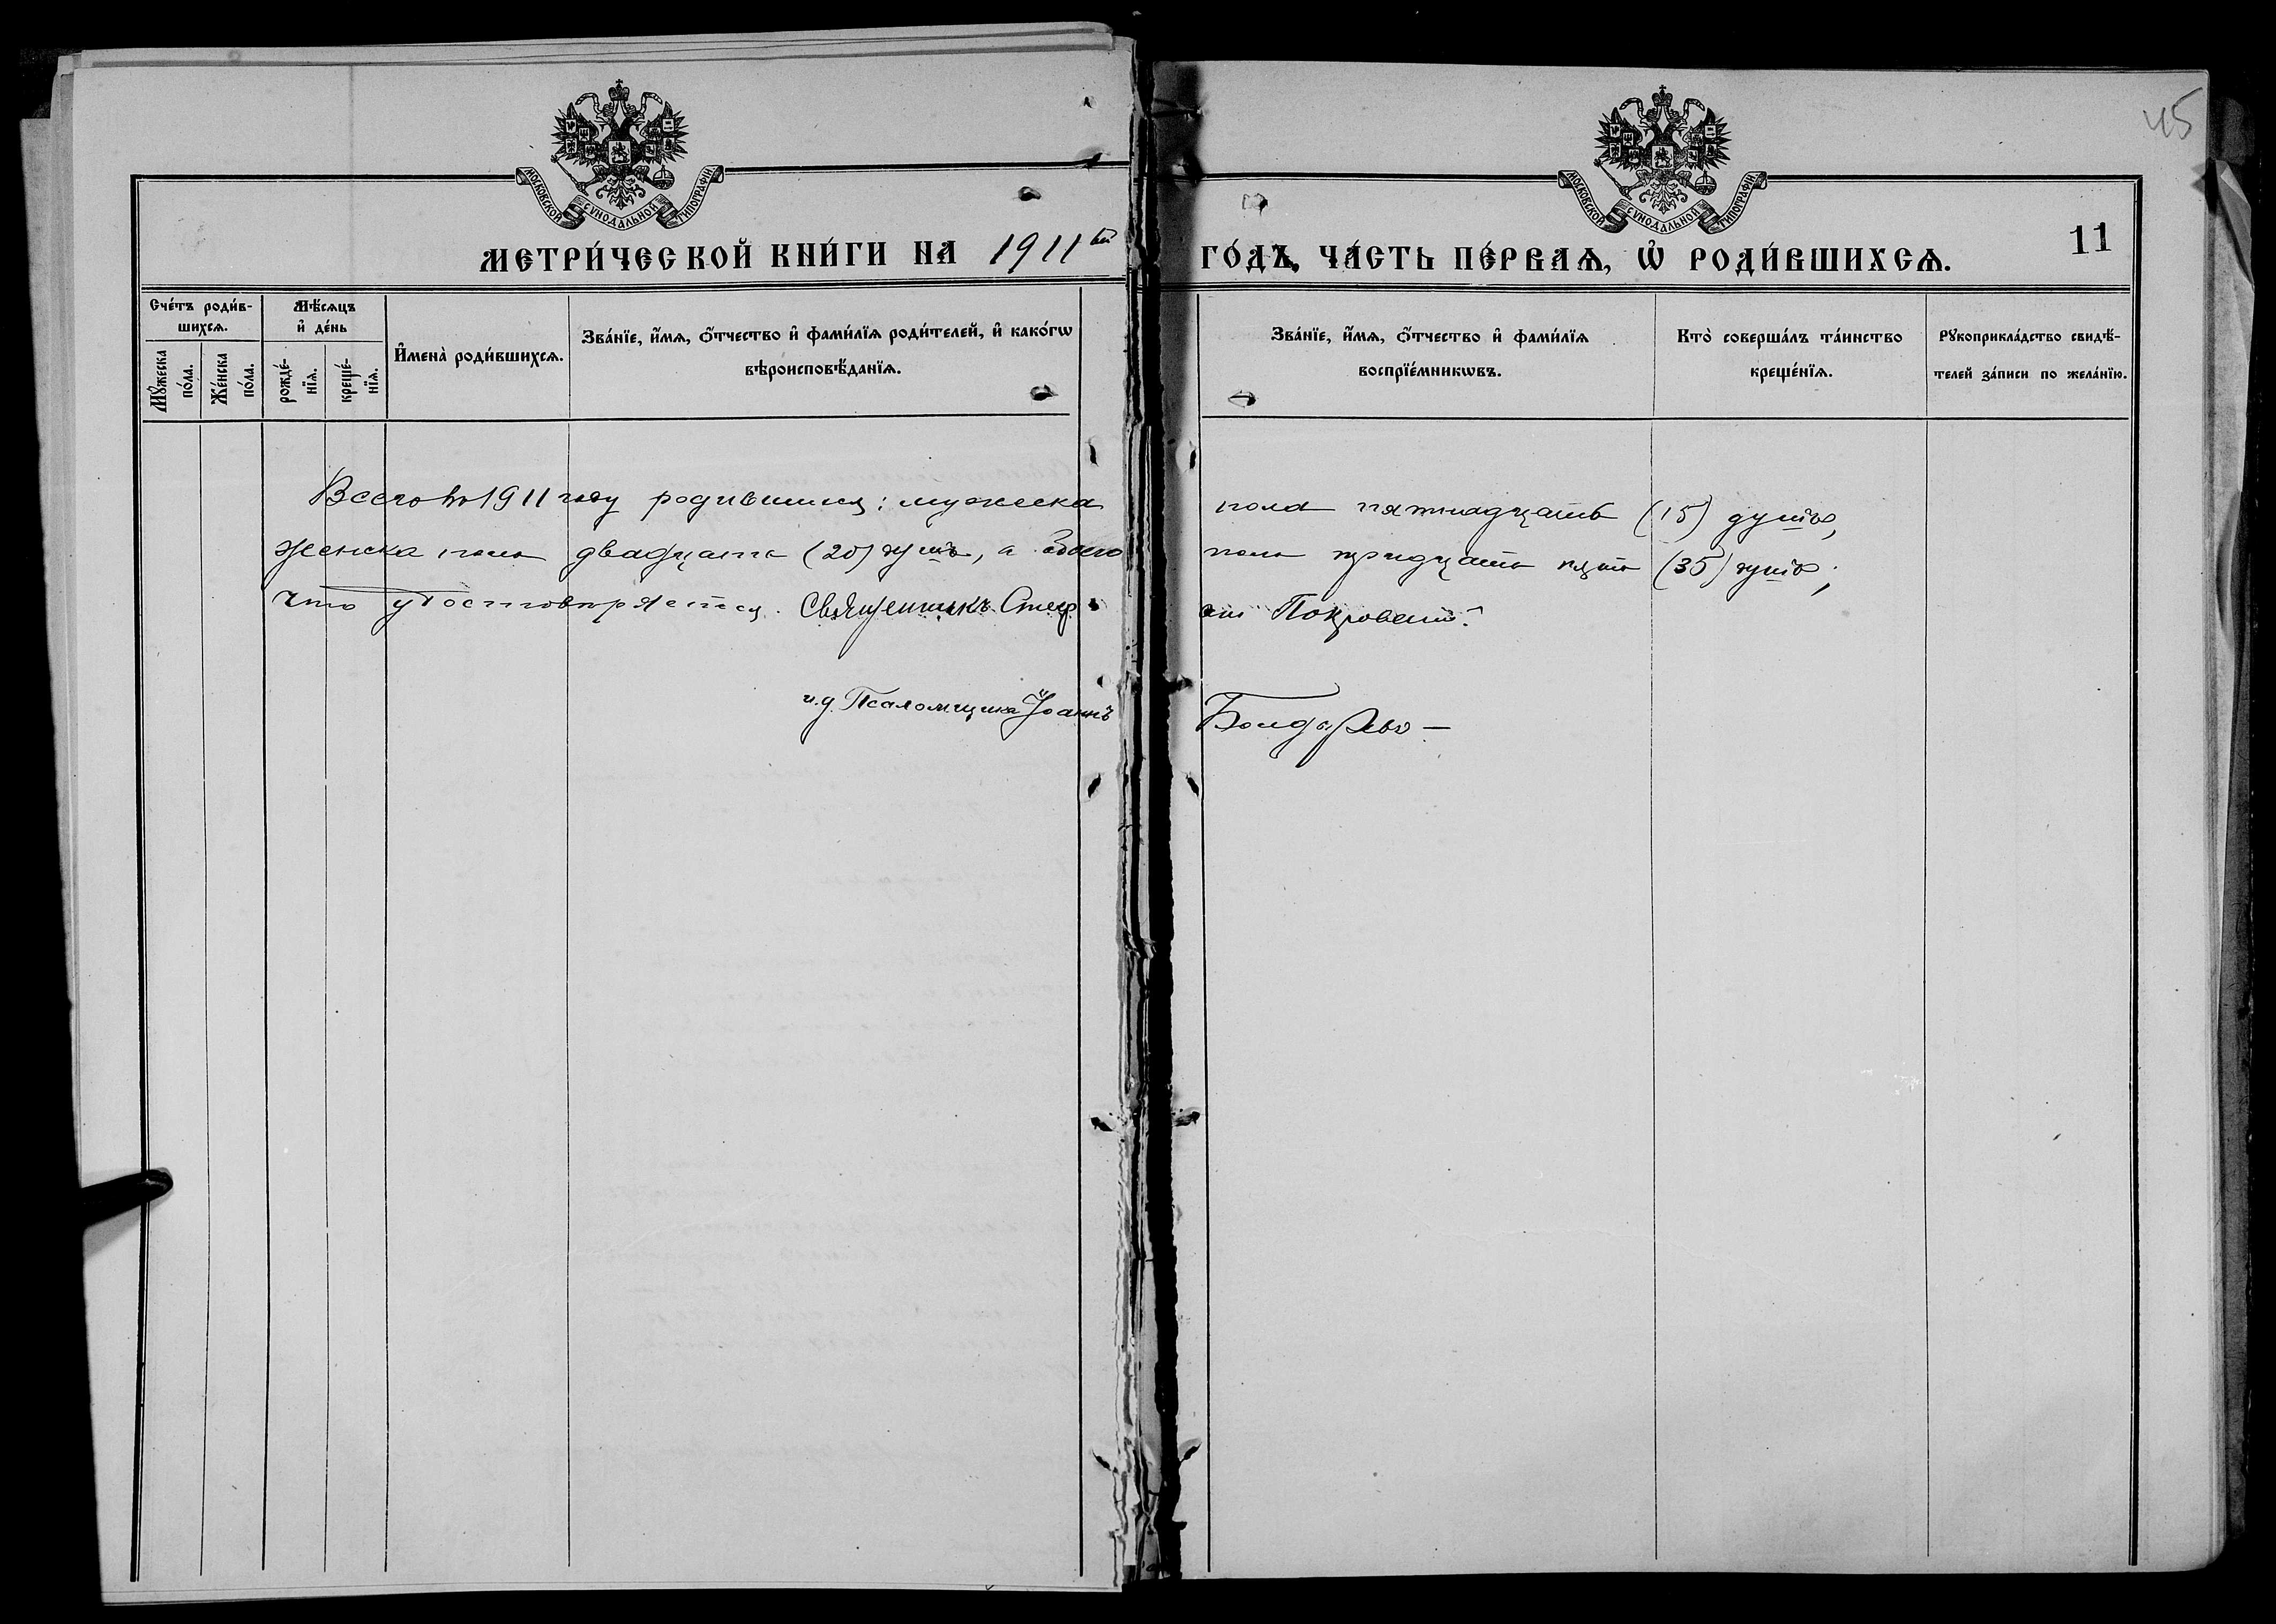 45
МОСКОВСКОЙ СѴНОДАЛЬНОЙ ТИПОГРАФІИ
МОСКОВСКОЙ СѴНОДАЛЬНОЙ ТИПОГРАФІИ
МЕТРИ́ЧЕСКОЙ КНИ́ГИ НА 1911ый ГО́ДЪ, ЧА́СТЬ ПЕ́РВАѦ, Ѡ҆ РОДИ́ВШИХСѦ. 11
Сче́тъ роди́в-
шихсѧ.
Мꙋ́жеска по́ла.
Же́нска по́ла.
Мѣ́сѧцъ
и҆ де́нь
рожде́-
нїѧ.
креще́-
нїѧ.
И҆мена̀ роди́вшихсѧ.
Зва́нїе, и҆́мѧ, ѻ҆́тчество и҆ фами́лїѧ роди́телей, и҆ како́гѡ
вѣроисповѣ́данїѧ.
Зва́нїе, и҆́мѧ, ѻ҆́тчество и҆ фами́лїѧ
воспрїе́мникѡвъ.
Кто̀ соверша́лъ та́инство
креще́нїѧ.
Рꙋкоприкла́дство свидѣ́-
телей за́писи по жела́нїю.
Всего въ 1911 году родившихся: мужеска пола пятнадцать (15) душъ,
женска пола двадцать (20) душъ, а обоего пола тридцать пять (35) душъ;
что удостовѣряется. Священникъ Стефанъ Покровскій.
и.д. Псаломщика Іоаннъ Бондаревъ —